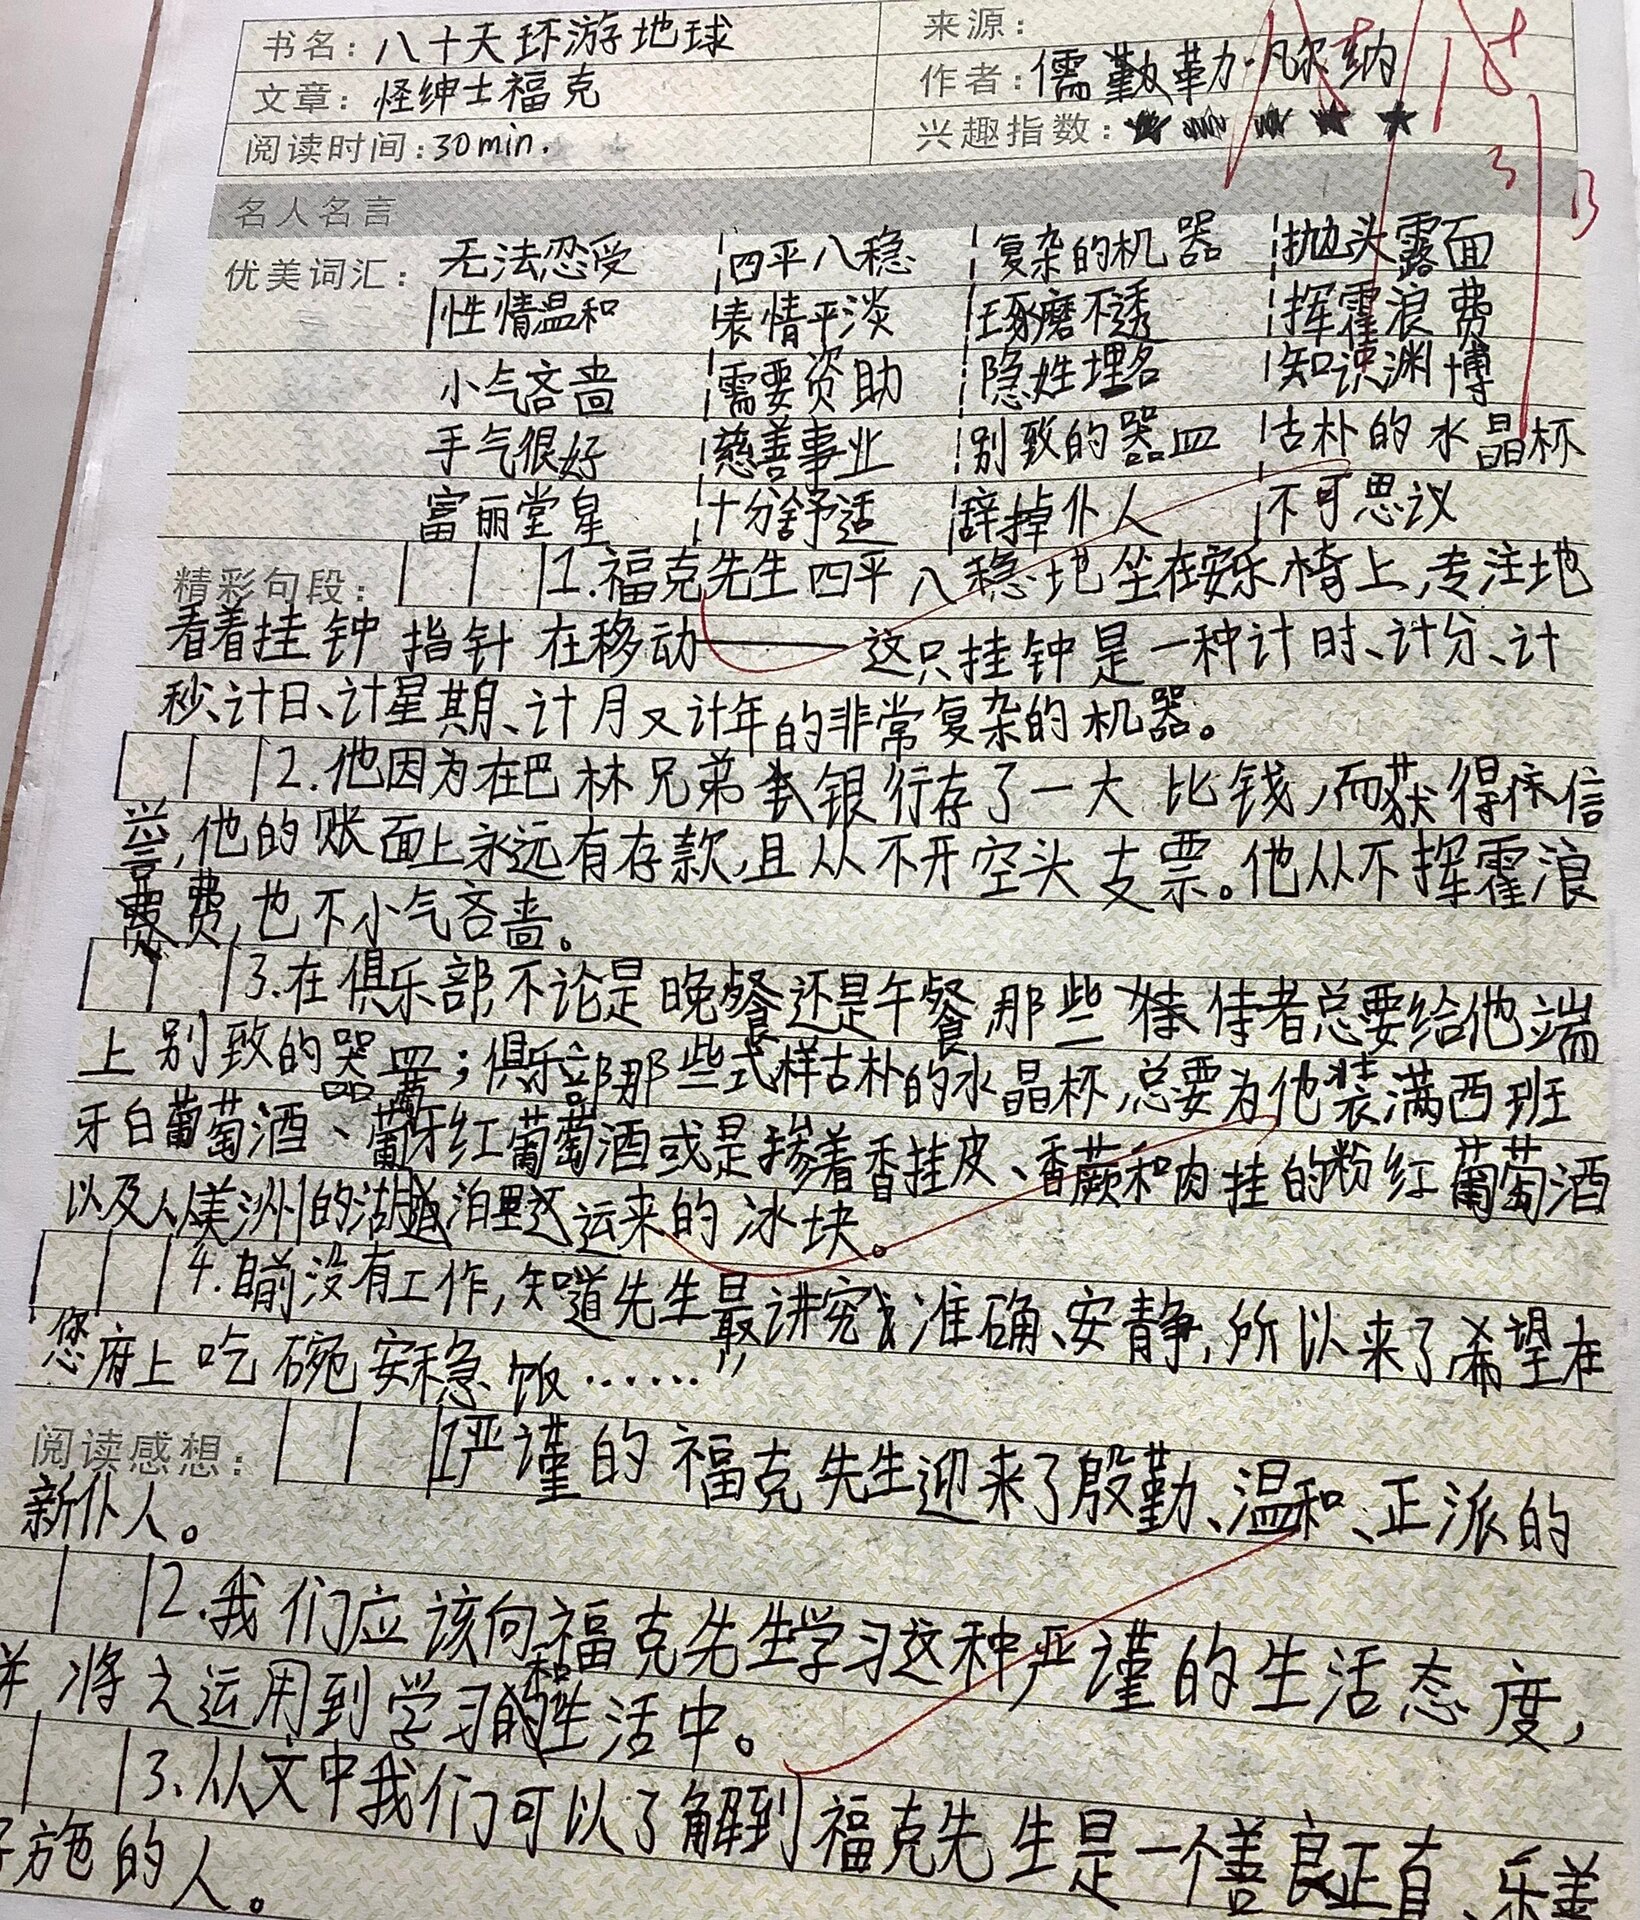 书名：八十天环游地球
来源：
文章：怪绅士福克
作者：儒勤勒·凡尔纳
阅读时间：30min.
兴趣指数：★★★★★
名人名言
优美词汇：无法忍受 四平八稳 复杂的机器 抛头露面
性情温和 表情平淡 琢磨不透 挥霍浪费
小气吝啬 需要资助 隐姓埋名 知识渊博
手气很好 慈善事业 别致的器皿 古朴的水晶杯
富丽堂皇 十分舒适 辞掉仆人 不可思议
精彩句段：1.福克先生四平八稳地坐在安乐椅上,专注地
看着挂钟指针在移动——这只挂钟是一种计时、计分、计
秒、计日、计星期、计月又计年的非常复杂的机器。
2.他因为在巴林兄弟银行存了一大比钱,而获得信
誉,他的账面上永远有存款,且从不开空头支票。他从不挥霍浪
费,也不小气吝啬。
3.在俱乐部,不论是晚餐还是午餐,那些侍者总要给他端
上别致的器皿；俱乐部那些式样古朴的水晶杯,总要为他装满西班
牙白葡萄酒、葡萄牙红葡萄酒或是掺着香挂皮、香蕨和肉挂的粉红葡萄酒
以及从美洲的湖泊里运来的冰块。
4.目前没有工作,知道先生最讲究准确、安静,所以来了希望在
您府上吃碗安稳饭……”
阅读感想：1.严谨的福克先生迎来了殷勤、温和、正派的
新仆人。
2.我们应该向福克先生学习这种严谨的生活态度,
并将之运用到学习和生活中。
3.从文中我们可以了解到福克先生是一个善良正直、乐善
好施的人。